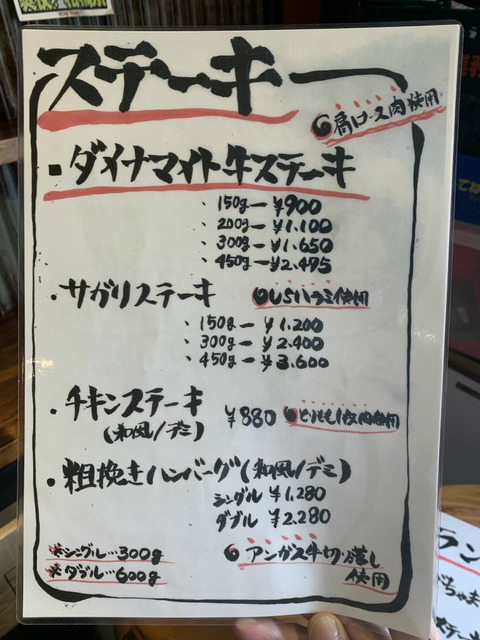 ステーキ
肩ロース肉使用
・ダイナマイト牛ステーキ
・150g ー ¥900
・200g ー ¥1.100
・300g ー ¥1.650
・450g ー ¥2.475
・サガリステーキ
・150g ー ¥1.200
・300g ー ¥2.400
・450g ー ¥3.600
・チキンステーキ
(和風/デミ)
¥880
とりもも1枚肉使用
・粗挽きハンバーグ(和風/デミ)
シングル ¥1.280
ダブル ¥2.280
※シングル…300g
※ダブル…600g
アンガス牛切り落し
使用
ラン